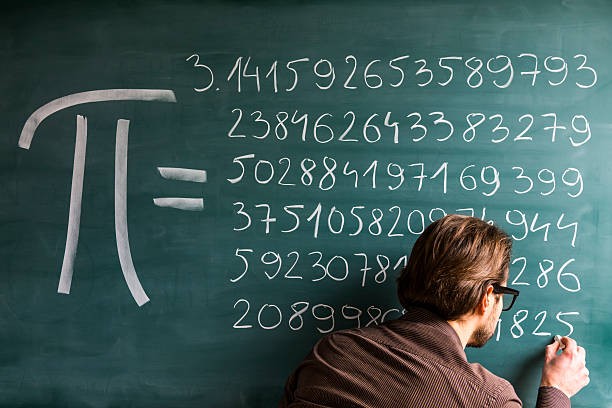 π = 3.141592653589793
238462643383279
502884197169399
3751058209 944
5923078 286
208998 825